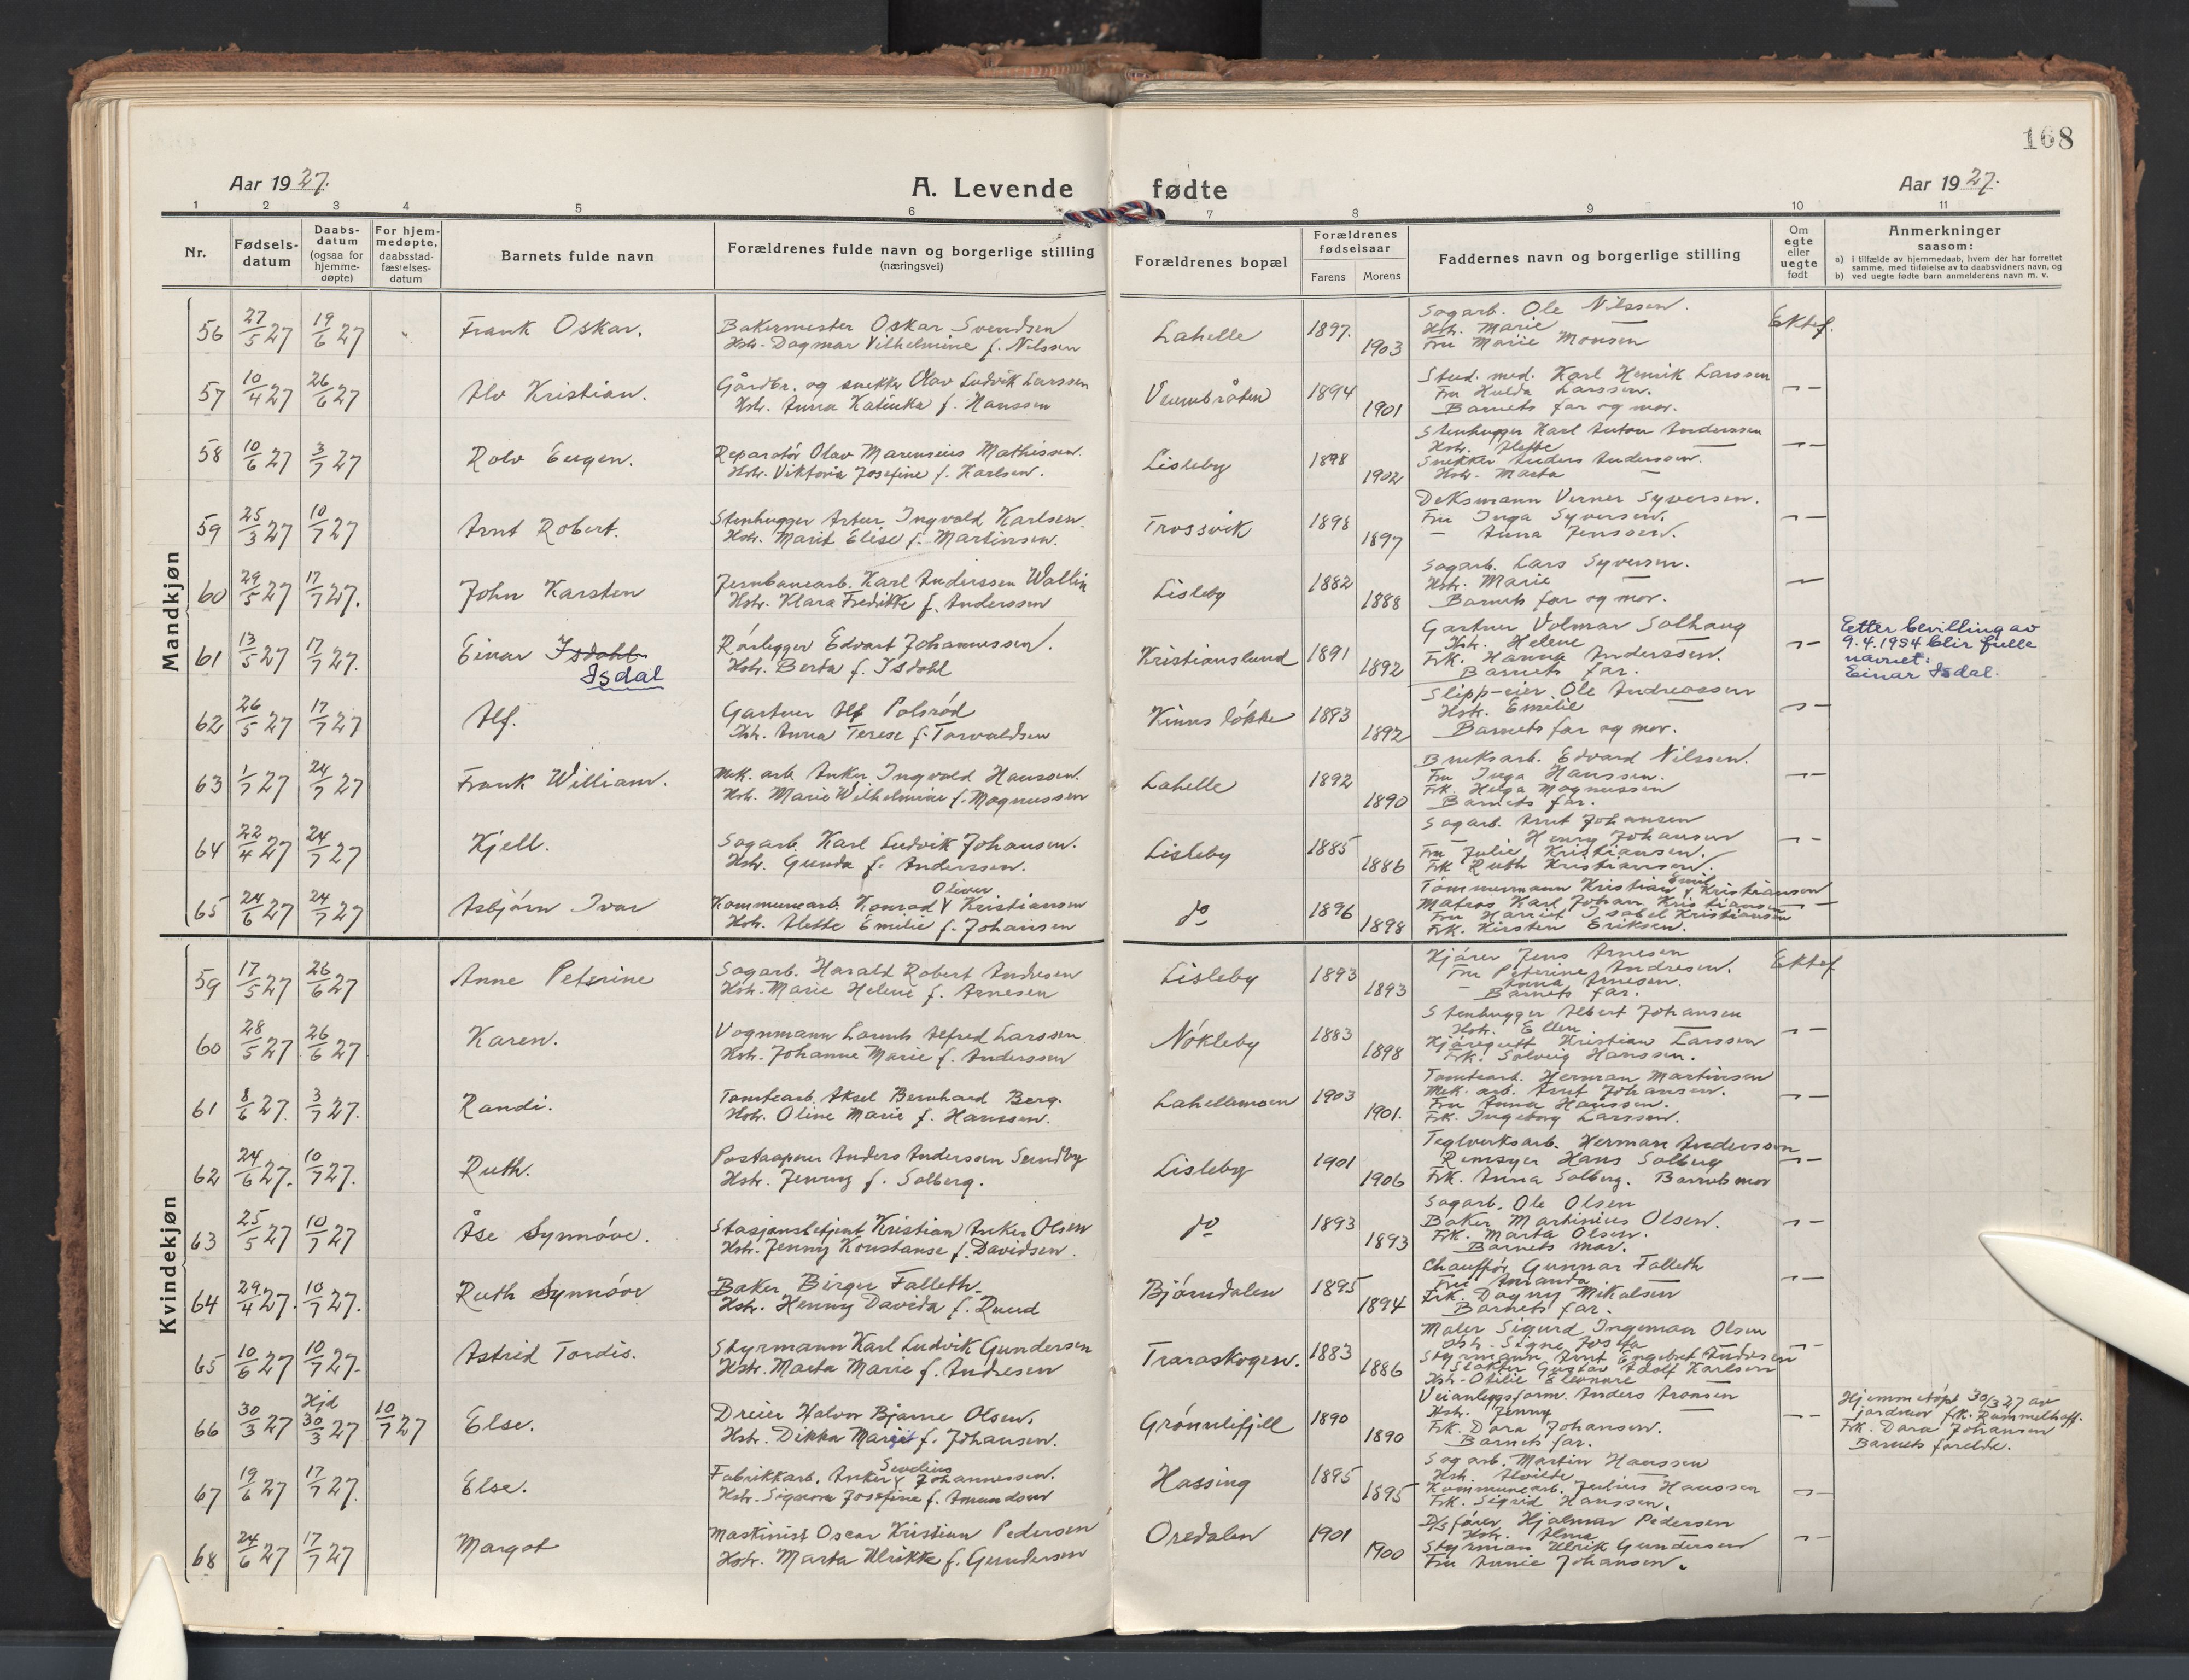 168
Aar 1927.
A. Levende fødte
Aar 1927.
1 2 3 4 5 6 7 8 9 10 11
Nr.
Fødsels-
datum
Daabs-
datum
(ogsaa for
hjemme-
døpte)
For hjem-
medøpte,
daabsstad-
fæstelses-
datum
Barnets fulde navn
Forældrenes fulde navn og borgerlige stilling
(næringsvei)
Forældrenes bopæl
Forældrenes
fødselsaar
Farens Morens
Faddernes navn og borgerlige stilling
Om
egte
eller
uegte
født
Anmerkninger
saasom:
a) i tilfælde av hjemmedaab, hvem der har forrettet
samme, med tilføielse av to daabsvidners navn, og
b) ved uegte fødte barn anmelderens navn m. v.
Mandkjøn
56 27/5 27 19/6 27 Frank Oskar.
Bakermester Oskar Svendsen
Hstr. Dagmar Vilhelmine f. Nilssen
Lahelle 1897. 1903
Sagarb. Ole Nilssen.
Hstr. Marie —
Fru Marie Monsen
Ektef.
57 10/4 27 26/6 27 Alv Kristian.
Gårdbr. og snekker Olav Ludvik Larssen
Hstr. Anna Katinka f. Hanssen
Veumbråten 1894 1901
Stud. med. Karl Henrik Larssen
Fru Hulda Larssen.
Barnets far og mor.
— —
58 10/6 27 3/7 27 Rolv Eugen.
Reparatør Olav Marensius Mathissen.
Hstr. Viktoria Josefine f. Karlsen.
Lisleby 1898 1902
Stenhugger Karl Anton Anderssen
Hstr. Alette —
Snekker Anders Anderssen.
Hstr. Marta —
— —
59 25/3 27 10/7 27 Arnt Robert.
Stenhugger Artur Ingvald Karlsen.
Hstr. Marit Elise f. Martinsen.
Trossvik 1898 1897
Deksmann Verner Syversen.
Fru Inga Syversen.
— Anna Jenssen.
— —
60 29/5 27 17/7 27. John Karsten
Jernbanearb. Karl Anderssen Wallin
Hstr. Klara Fredrikke f. Anderssen
Lisleby 1882 1888
Sagarb. Lars Syversen.
Hstr. Marie —
Barnets far og mor.
—
61 13/5 27 17/7 27. Einar Isdahl
Isdal
Rørlegger Edvart Johannessen.
Hstr. Berta f. Isdahl
Kristianslund 1891 1892
Gartner Volmar Solhaug
Hstr. Helene —
Frk. Hanna Anderssen.
Barnets far.
— —
Etter bevilling av
9.4.1934 blir fulle
navnet:
Einar Isdal.
62 26/5 27 17/7 27 Alf.
Gartner Alf Polsrød
Hstr. Anna Terese f. Torvaldsen
Kinns løkke 1893 1892
Slipp-eier Ole Andreassen
Hstr. Emilie —
Barnets far og mor.
— —
63 1/7 27 24/7 27 Frank William.
Mek. arb. Anker Ingvald Hanssen.
Hstr. Marie Wilhelmine f. Magnussen
Lahelle 1892 1890
Bruksarb. Edvard Nilssen.
Fru Inga Hanssen.
Frk. Helga Magnussen
Barnets far.
— —
64 22/4 27 24/7 27 Kjell.
Sagarb. Karl Ludvik Johansen.
Hstr. Gunda f. Anderssen.
Lisleby 1885 1886
Sagarb. Arnt Johansen
— Henry Johansen
Fru Julie Kristiansen.
Frk Ruth Kristiansen.
— —
65 24/6 27 24/7 27 Asbjørn Ivar
Kommunearb. Konrad Oliver Kristiansen
Hstr. Alette Emilie f. Johansen
do 1896 1898
Tømmermann Kristian Emil Kristiansen
Matros Karl Johan Kristiansen
Fru Harriet Isabel Kristiansen
Frk. Kirsten Eriksen.
— —
Kvindekjøn
59 17/5 27 26/6 27 Anne Peterine
Sagarb. Harald Robert Andresen
Hstr. Marie Helene f. Arnesen
Lisleby 1893 1893
Kjører Jens Arnesen
Fru Peterine Andresen.
— Anna Arnesen.
Barnets far.
Ektef
60 28/5 27 26/6 27 Karen.
Vognmann Laurits Alfred Larssen
Hstr. Johanne Marie f. Anderssen
Nøkleby 1883 1898
Stenhugger Albert Johansen
Hstr. Ellen —
Kjøregutt Kristian Larssen
Frk. Solveig Hanssen.
— —
61 8/6 27. 3/7 27. Randi.
Tomtearb. Aksel Bernhard Berg.
Hstr. Oline Marie f. Hanssen.
Lahellemoen 1903 1901.
Tomtearb. Herman Martinsen
Mek. arb. Arnt Johansen.
Fru Anna Hanssen.
Frk. Ingeborg Larssen.
— —
62 24/6 27. 10/7 27. Ruth.
Postaapner Anders Anderssen Sundby
Hstr. Jenny f. Solberg.
Lisleby 1901 1906
Teglverksarb. Herman Anderssen
Remsyer Hans Solberg
Frk. Anna Solberg. Barnets mor
— —
63 25/5 27 10/7 27 Åse Synnøve.
Stasjonsbetjent Kristian Anker Olsen
Hstr. Jenny Konstanse f. Davidsen.
do 1893 1893
Sagarb. Ole Olsen
Baker Martinius Olsen.
Frk. Marta Olsen.
Barnets mor.
— —
64 29/4 27. 10/7 27. Ruth Synnøve
Baker Birger Falleth.
Hstr. Henny Davida f. Ruud
Bjørndalen 1895 1894
Chauffør Gunnar Falleth
Fru Amanda —
Frk. Dagny Mikalsen
Barnets far.
— —
65 10/6 27 10/7 27. Astrid Tordis.
Styrmann Karl Ludvik Gundersen
Hstr. Marta Marie f. Andresen
Traraskogen. 1883 1886
Maler Sigurd Ingeman Olsen
Hstr. Signe Josefa
Styrmann Arnt Engebret Andresen
Slakter Gustav Adolf Karlsen
Hstr. Otilie Eleonore
— —
66 30/3 27 Hjd 30/3 27 10/7 27 Else.
Dreier Halvor Bjarne Olsen.
Hstr. Dikka Margit f. Johansen.
Grønnlifjell 1890 1890
Veianleggsform. Anders Aronsen
Hstr. Jenny —
Frk. Dora Johansen.
Barnets far.
— —
Hjemmedøpt 30/3 27 av
jordmor frk. Rommelhoff.
Frk. Dora Johansen
Barnets forelde.
67 19/6 27 17/7 27. Else.
Fabrikkarb. Anker Sevelius Johannessen.
Hstr. Signora Josefine f. Amundsen
Hassing 1895 1895
Sagarb. Martin Hanssen
Hstr. Alvilde —
Kommunearb. Julius Hanssen
Frk. Sigrid Hanssen.
— —
68 24/6 27 17/7 27 Margot
Maskinist Oscar Kristian Pedersen
Hstr. Marta Ulrikke f. Gundersen
Oredalen 1901 1900
D/sfører Hjalmar Pedersen
Hstr. Alma —
Styrman Ulrik Gundersen
Fru Annie Johansen.
— —